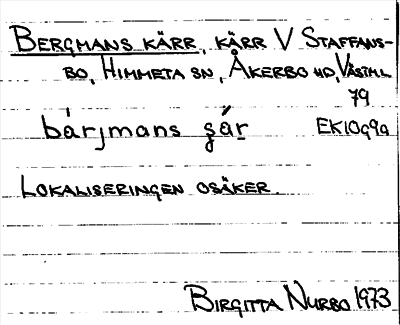 BERGMANS KÄRR, KÄRR V STAFFANS-
BO, HIMMETA SN, ÅKERBO HD, VÄSTML
79
bárjmans ʂá̱r EK10g9a
LOKALISERINGEN OSÄKER.
BIRGITTA NURBO 1973